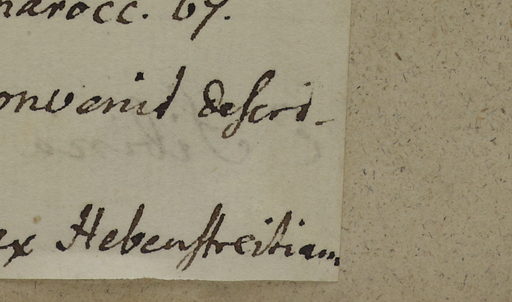 marocc. 67.
onvenit descri-
ex Hebenstreitian